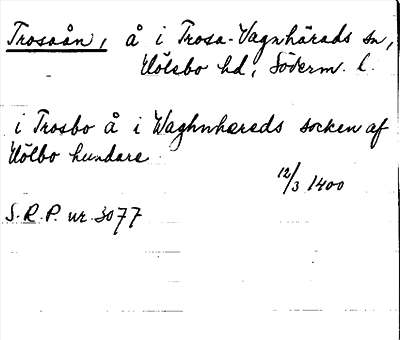 Trosaån, å i Trosa-Vagnhärads sn,
Hölebo hd, Söderm. l.
i Trosbo å i Waghnhæreds socken af
Hölbo hundare
12/3 1400
S.R.P. nr 3077